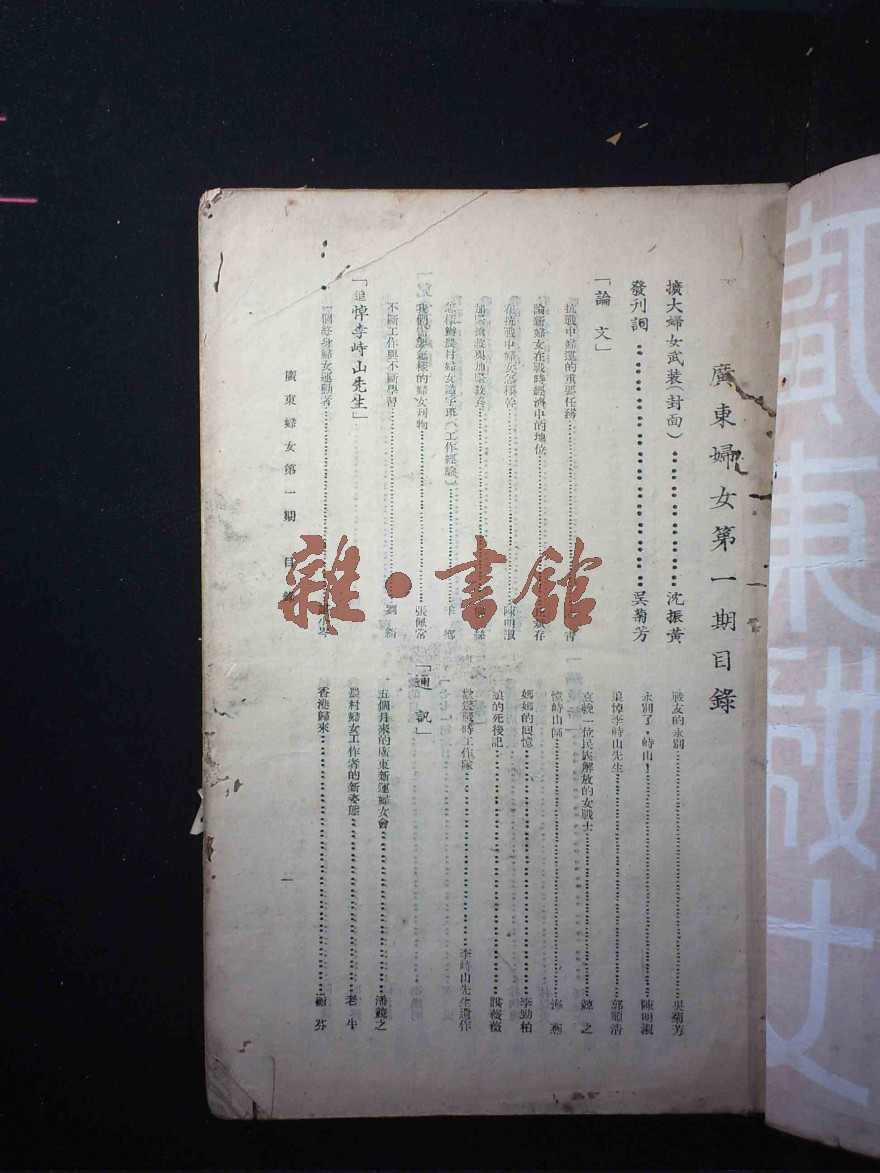 廣東婦女第一期目錄
擴大婦女武裝(封面)……沈振黃
發刊詞……吳菊芳
「論 文」
抗戰中婦運的重要任務……
論新婦女在戰時經濟中的地位……
在抗戰中婦女怎樣幹……陳明淑
加緊搶救與地緊教養……
怎樣辦農村婦女識字班(工作經驗)……
我們需要怎樣的婦女刊物……張佩常
不斷工作與不斷學習……劉新
「追悼李峙山先生」
一個終身婦女運動者……
戰友的永別……吳菊芳
永別了,峙山!……陳明淑
追悼李峙山先生……郭順清
哀輓一位民族解放的女戰士……之
憶峙山師……海燕
媽媽的回憶……李勁柏
娘的死後記……薇薇
戰時工作隊……李峙山先生遺作
「通 訊」
五個月來的廣東新運婦女會……潘鏡之
農村婦女工作者的新姿態……老牛
香港歸來……芬
廣東婦女第一期 目錄
一
雜·書館
廣東婦女